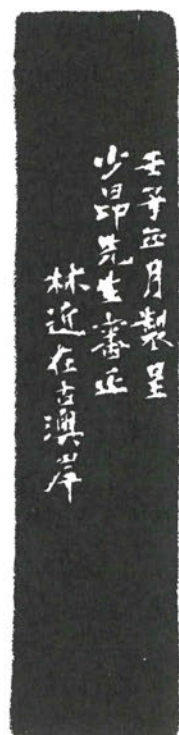 壬子正月製呈
少昂先生審正
林近在古澳岸